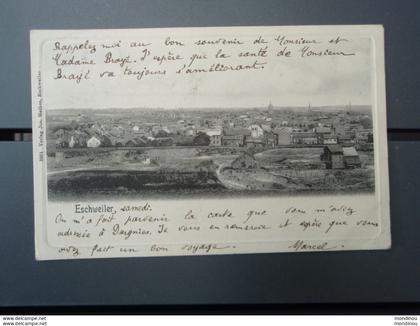 Rappelez moi au bon souvenir de Monsieur et
Madame Brayé. J'espère que la santé de Monsieur
Brayé va toujours s'améliorant.
Verlag Jos. Eschweiler.
Eschweiler, samedi.
On m'a fait parvenir la carte que vous m'avez
adressée à Dargnies. Je vous en remercie et espère que vous
avez fait un bon voyage. Marcel
mondinou
www.mondinou.com